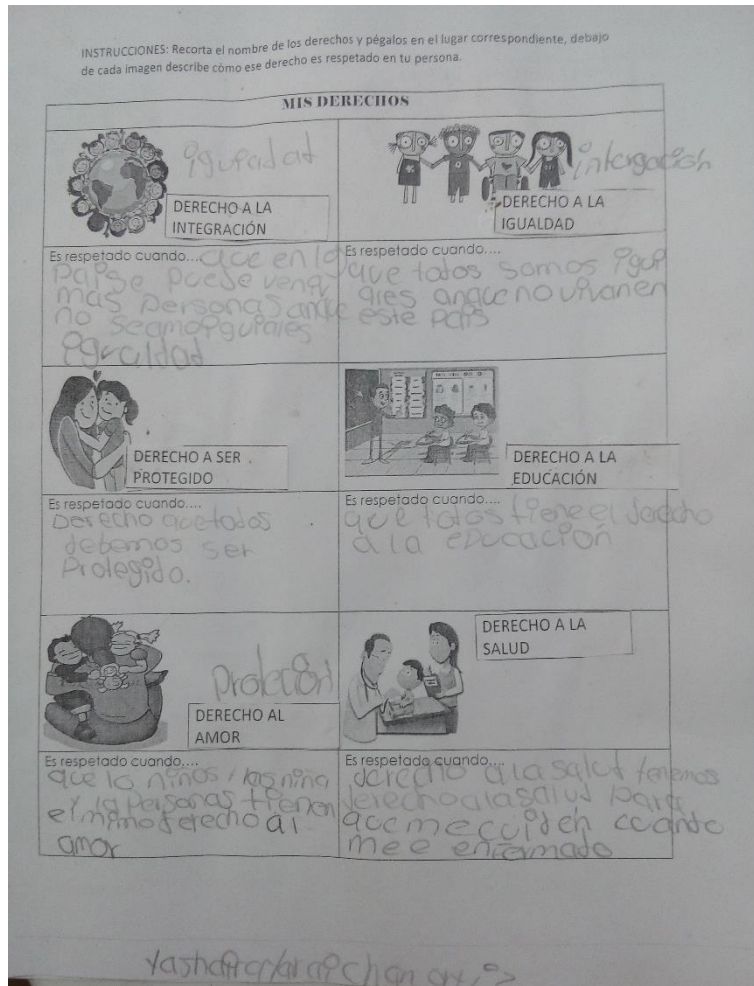 INSTRUCCIONES: Recorta el nombre de los derechos y pégalos en el lugar correspondiente, debajo
de cada imagen describe cómo ese derecho es respetado en tu persona.
MIS DERECHOS
igualdad
DERECHO A LA
INTEGRACIÓN
intergación
DERECHO A LA
IGUALDAD
Es respetado cuando.... que en la
paise puese venga
mas personas anque
no seamo iguales
igualdad
Es respetado cuando....
que todos somos igual
ales anque no vivan en
este pais
DERECHO A SER
PROTEGIDO
DERECHO A LA
EDUCACIÓN
Es respetado cuando....
Derecho que todos
debemos ser
Protegido.
Es respetado cuando....
que todos tiene el derecho
a la educación
Proteción
DERECHO AL
AMOR
DERECHO A LA
SALUD
Es respetado cuando....
que lo niños, las niña
y la personas tienen
el mimo derecho al
amor
Es respetado cuando....
derecho a la salud tenemos
derecho a la salud para
que me cuiden cuando
me e enfermado